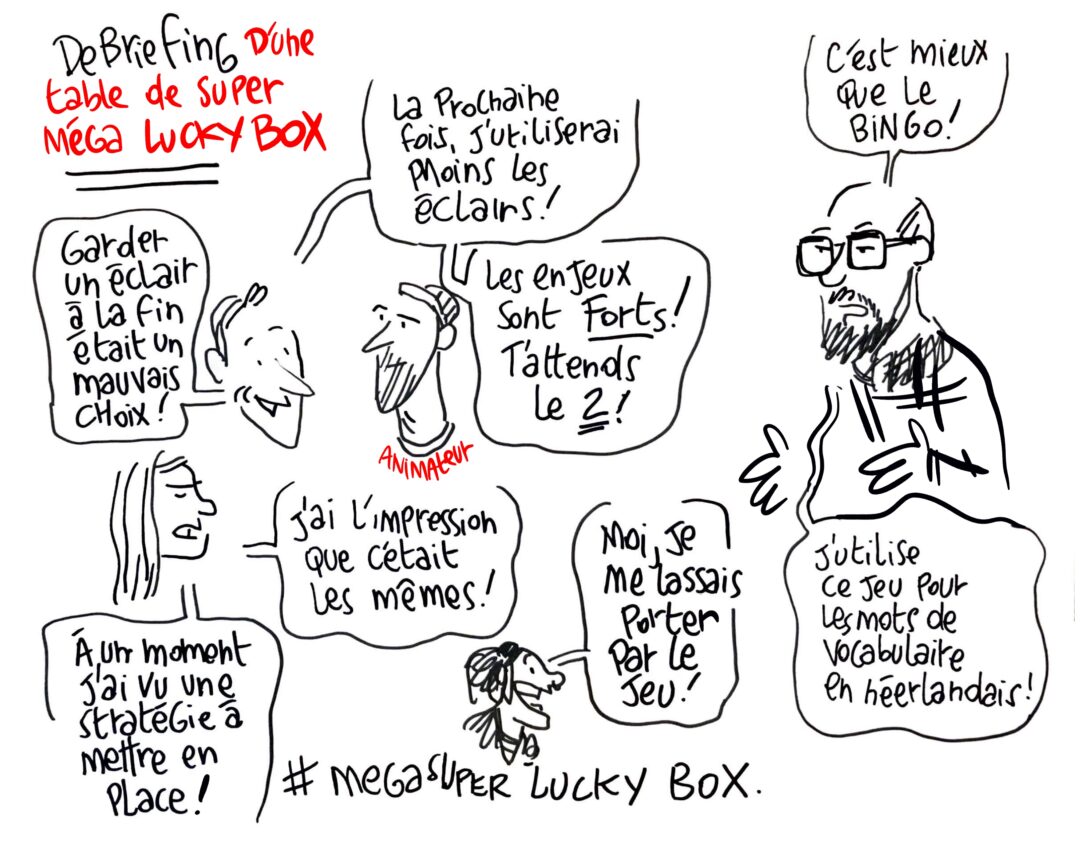 DeBriefing D'une
table de super
Méga LUCKY BOX
La Prochaine
fois, j'utiliserai
moins les
éclairs!
C'est mieux
que le
BINGO!
Garder
un éclair
à la fin
était un
mauvais
choix!
Les enjeux
sont Forts!
T'attends
le 2!
ANIMAteur
J'ai l'impression
que c'était
les mêmes!
Moi, je
me lassais
Porter
Par le
jeu!
J'utilise
ce jeu pour
les mots de
vocabulaire
en néerlandais!
À un moment
j'ai vu une
stratégie à
mettre en
place!
# MEGASUPER LUCKY BOX.